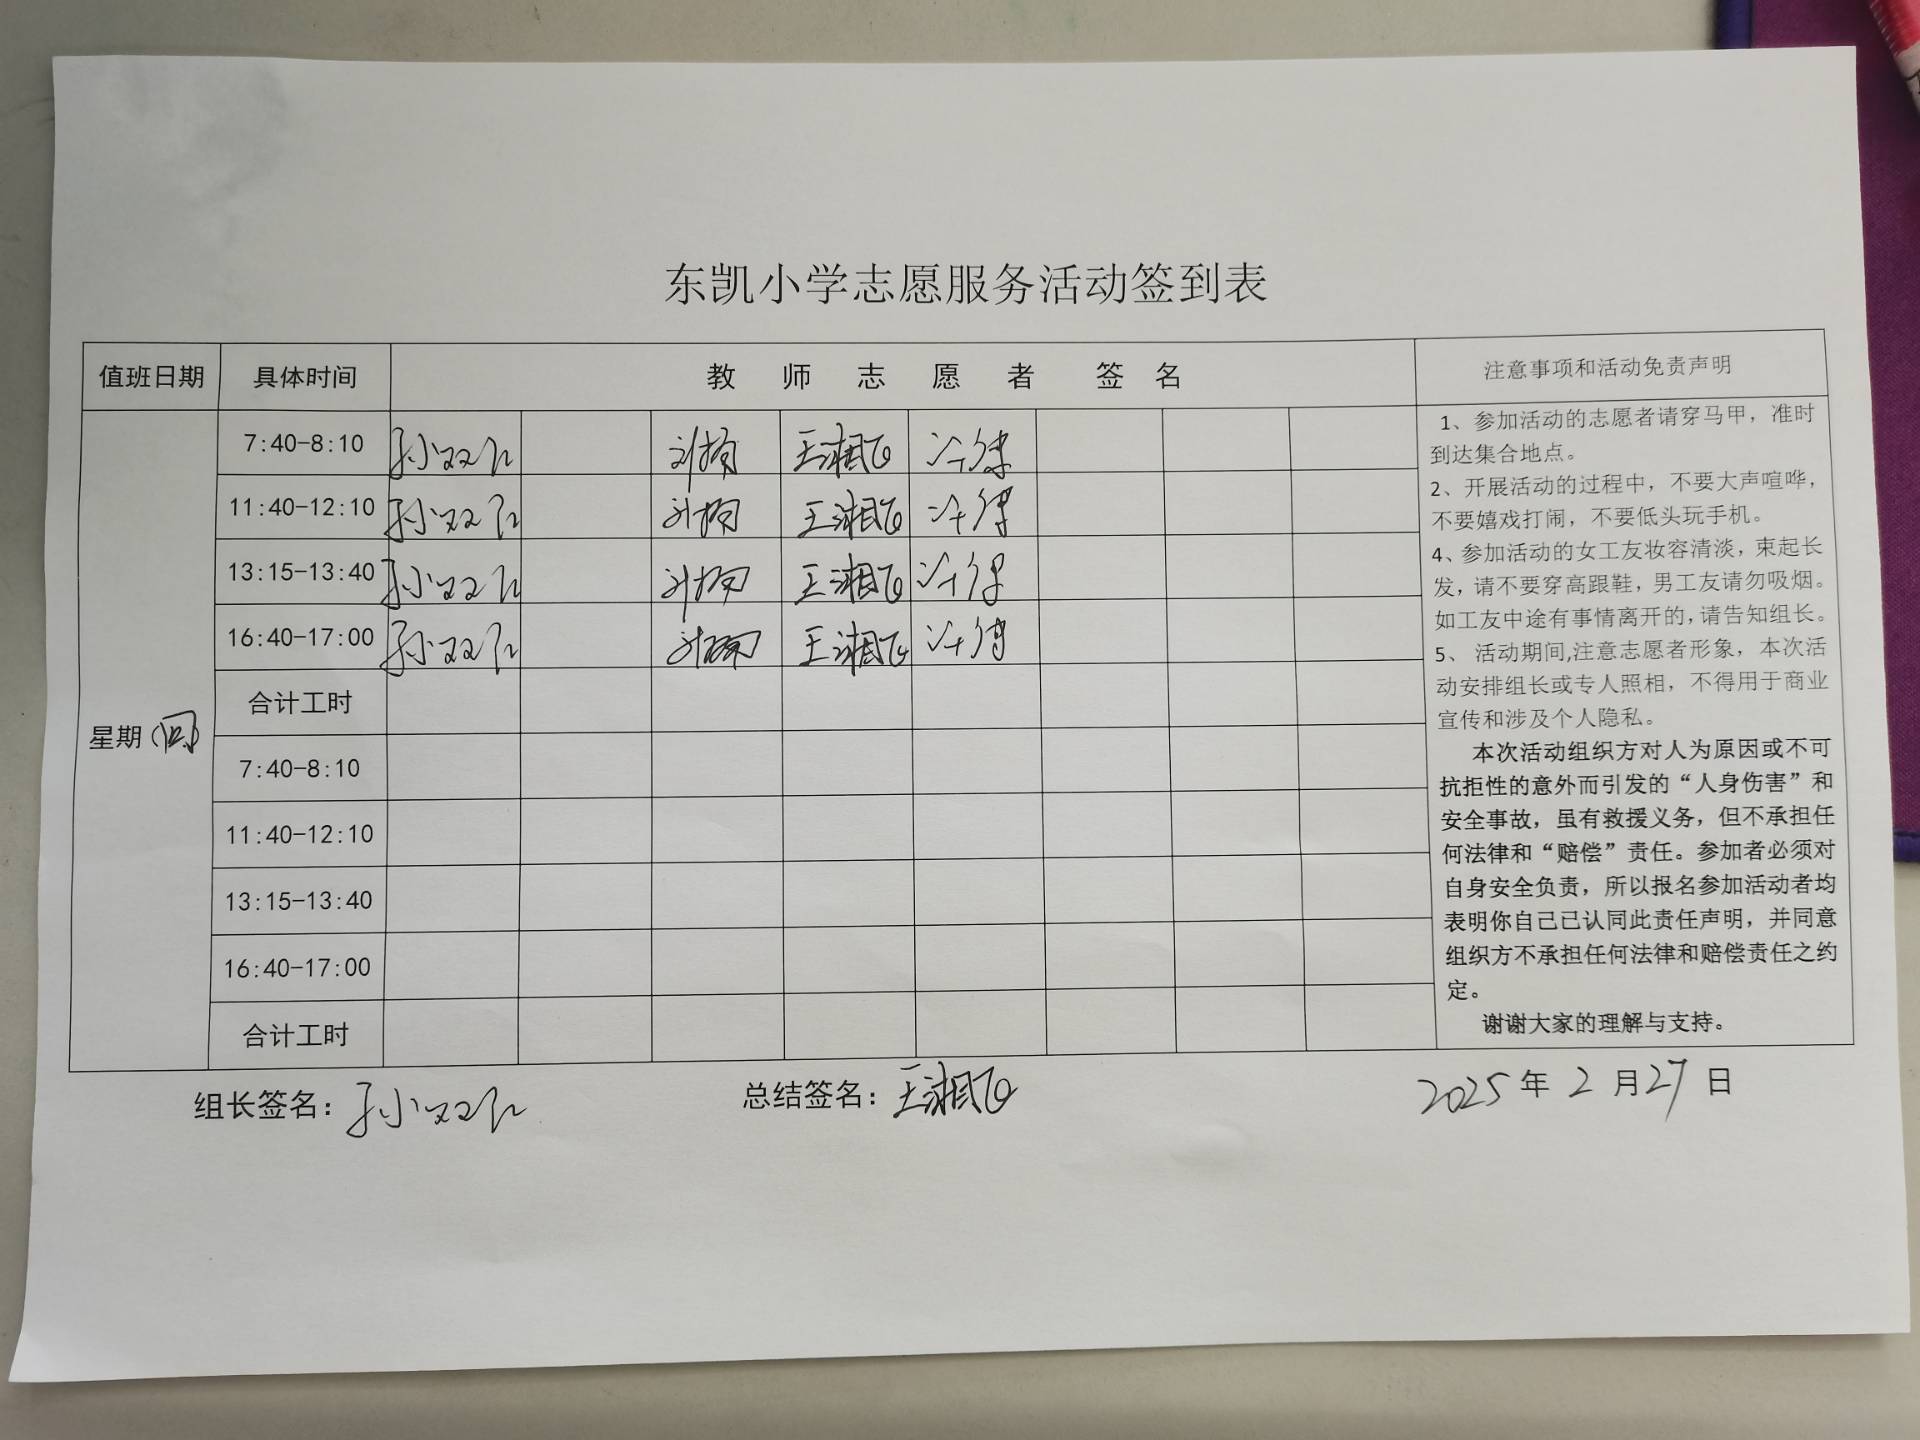 东凯小学志愿服务活动签到表
值班日期 具体时间 教师志愿者签名 注意事项和活动免责声明
星期（四）
7:40-8:10 孙双 刘扬 王湘飞
11:40-12:10 孙双 刘扬 王湘飞
13:15-13:40 孙双 刘扬 王湘飞
16:40-17:00 孙双 刘扬 王湘飞
合计工时
7:40-8:10
11:40-12:10
13:15-13:40
16:40-17:00
合计工时
1、参加活动的志愿者请穿马甲，准时
到达集合地点。
2、开展活动的过程中，不要大声喧哗，
不要嬉戏打闹，不要低头玩手机。
4、参加活动的女工友妆容清淡，束起长
发，请不要穿高跟鞋，男工友请勿吸烟。
如工友中途有事情离开的，请告知组长。
5、 活动期间,注意志愿者形象，本次活
动安排组长或专人照相，不得用于商业
宣传和涉及个人隐私。
本次活动组织方对人为原因或不可
抗拒性的意外而引发的“人身伤害”和
安全事故，虽有救援义务，但不承担任
何法律和“赔偿”责任。参加者必须对
自身安全负责，所以报名参加活动者均
表明你自己已认同此责任声明，并同意
组织方不承担任何法律和赔偿责任之约
定。
谢谢大家的理解与支持。
组长签名：孙双 总结签名：王湘飞 2025年2月27日